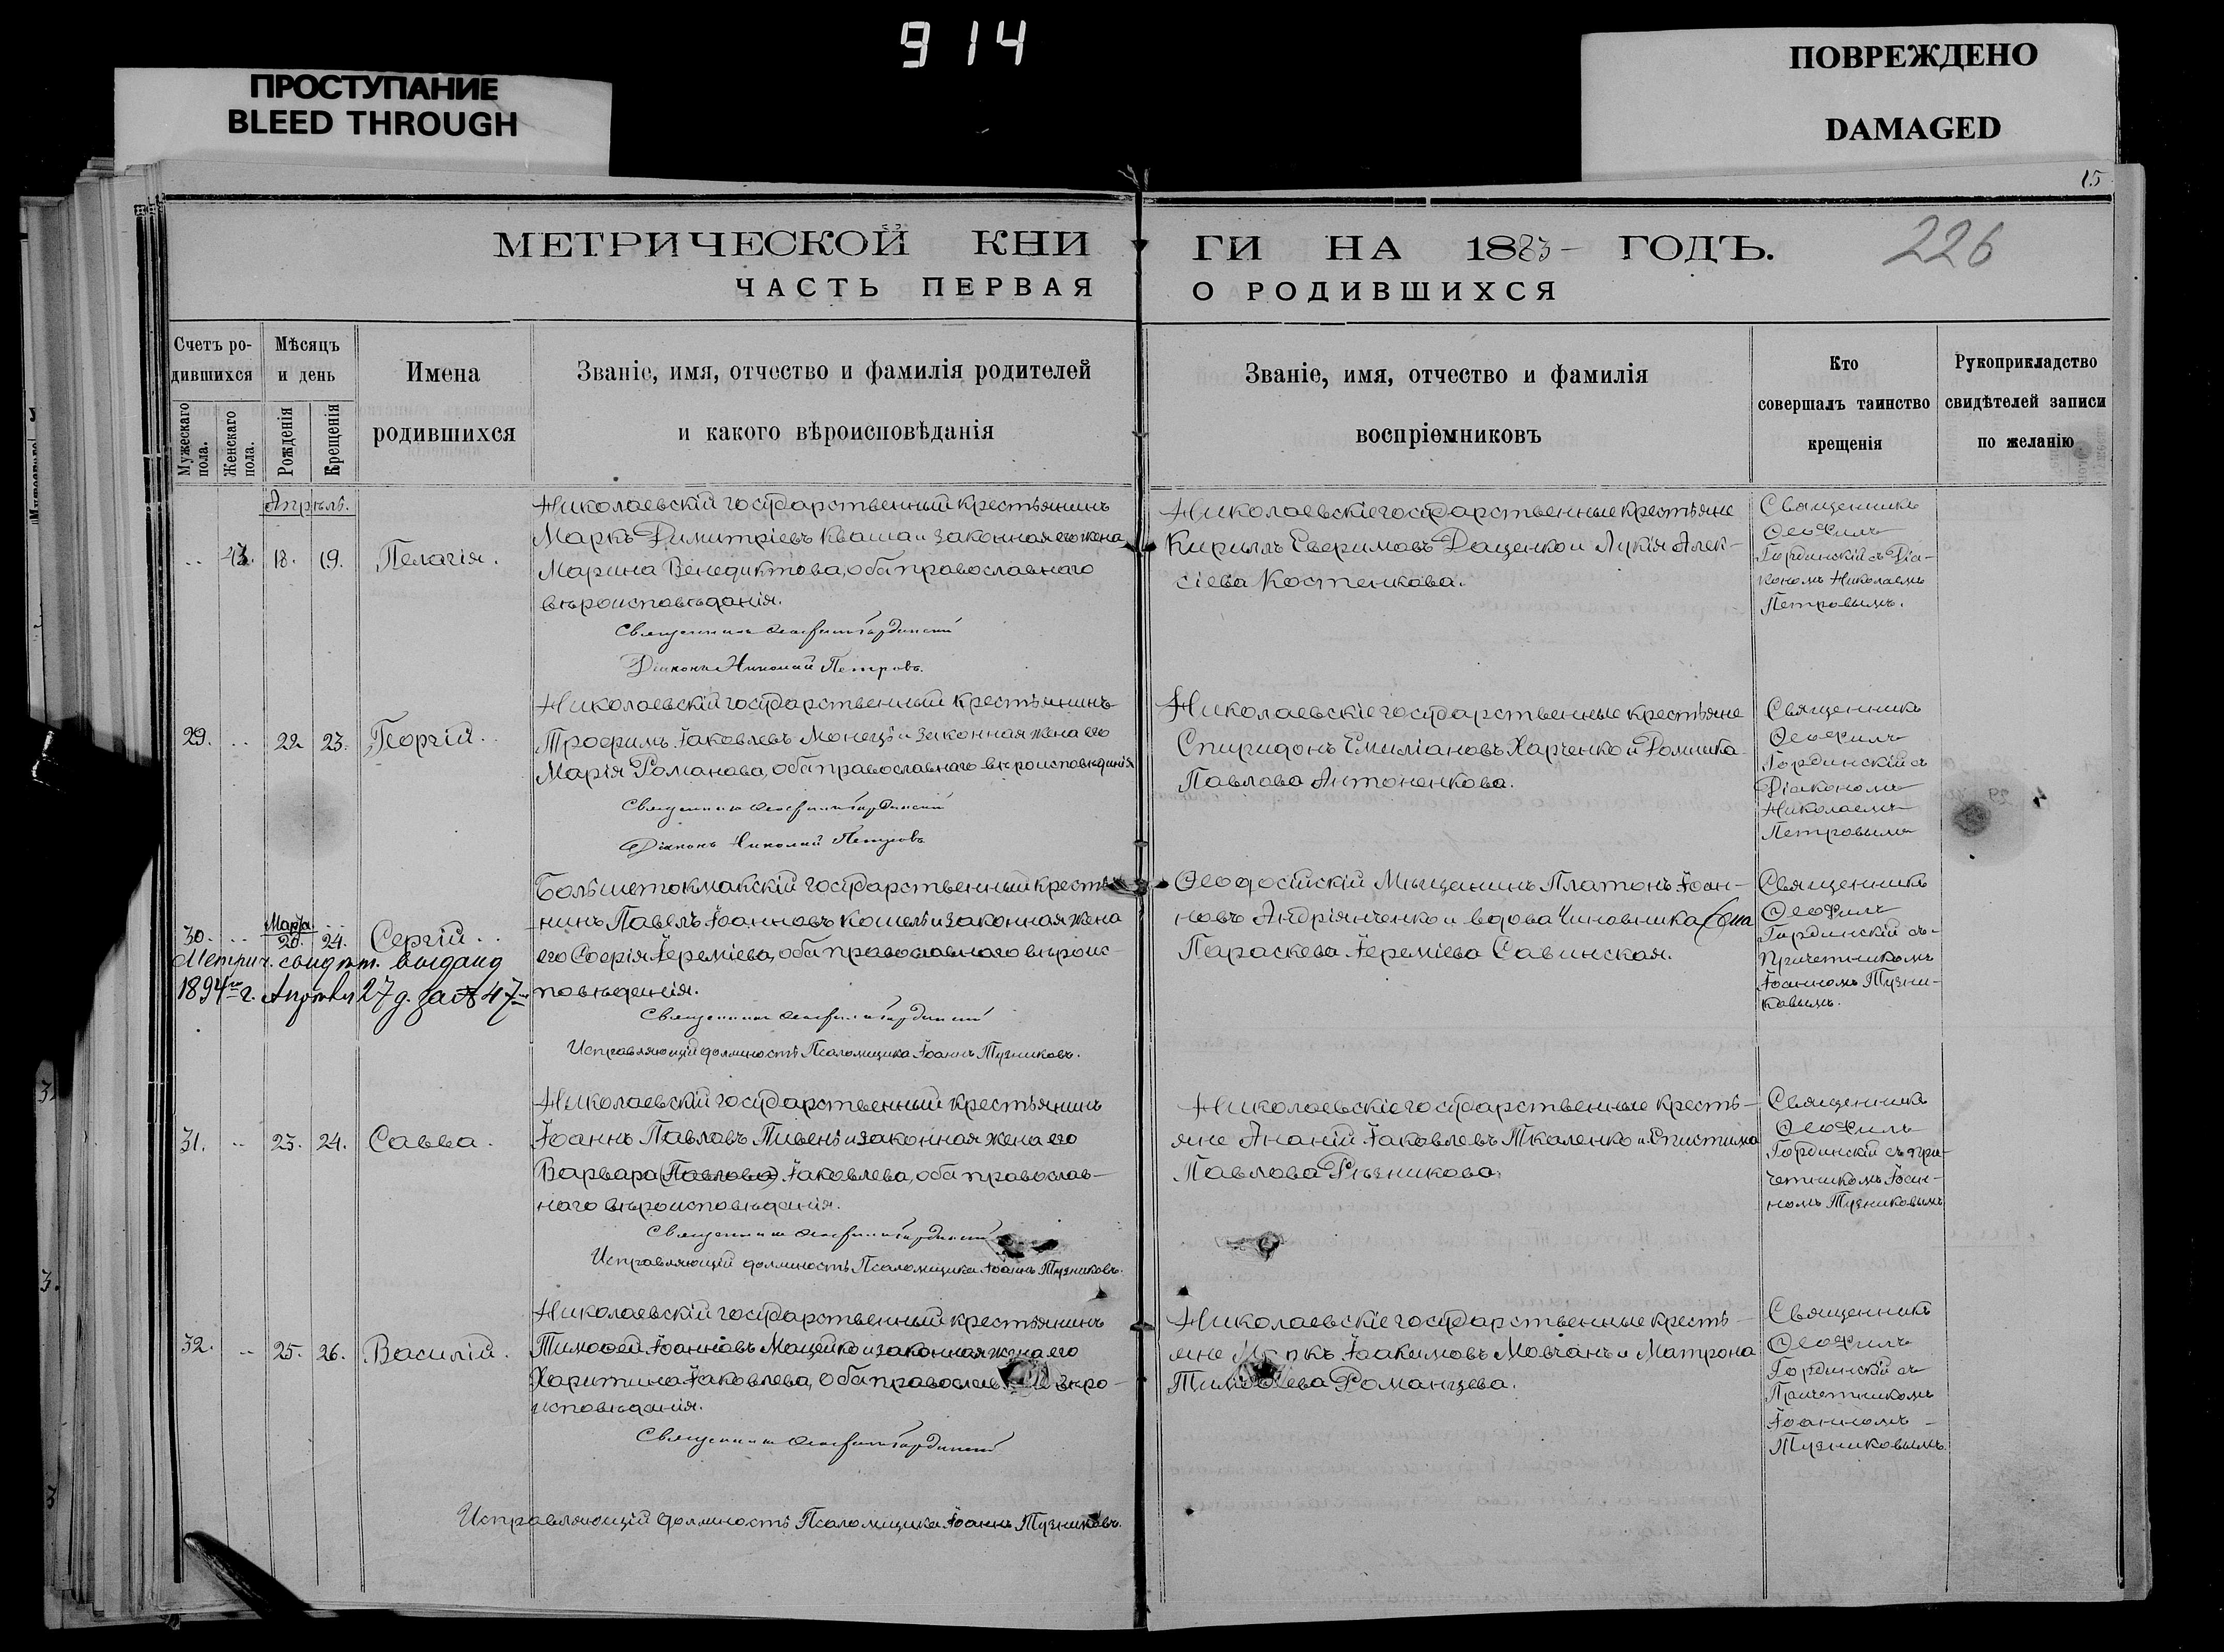 914
ПРОСТУПАНИЕ
BLEED THROUGH
ПОВРЕЖДЕНО
DAMAGED
15
226
МЕТРИЧЕСКОЙ КНИГИ НА 1883 ГОДЪ.
ЧАСТЬ ПЕРВАЯ О РОДИВШИХСЯ
Счетъ ро-
дившихся
Мужескаго пола.
Женскаго пола.
Мѣсяцъ
и день
Рожденія
Крещенія
Имена
родившихся
Званіе, имя, отчество и фамилія родителей
и какого вѣроисповѣданія
Званіе, имя, отчество и фамилія
воспріемниковъ
Кто
совершалъ таинство
крещенія
Рукоприкладство
свидѣтелей записи
по желанію
Апрѣль.
18. 19. Пелагія.
Николаевскій государственный крестьянинъ
Маркъ Димитріевъ Кваша и законная его жена
Марина Венедиктова, оба православнаго
вѣроисповѣданія.
Священникъ Ѳеофилъ Гординскій
Діаконъ Николай Петровъ.
Николаевскіе государственные крестьяне
Кириллъ Евѳимовъ Даценко и Лукія Алек-
сіева Костенкова.
Священникъ
Ѳеофилъ
Гординскій съ Діа-
кономъ Николаемъ
Петровымъ.
29. 22 23. Георгій.
Николаевскій государственный крестьянинъ
Трофимъ Іаковлевъ Монецъ и законная жена его
Марія Романова, оба православнаго вѣроисповѣданія
Священникъ Ѳеофилъ Гординскій
Діаконъ Николай Петровъ
Николаевскіе государственные крестьяне
Спиридонъ Емиліановъ Харченко и Домника
Павлова Антоненкова.
Священникъ
Ѳеофилъ
Гординскій съ
Діакономъ
Николаемъ
Петровымъ
30. Марта 20. 24. Сергій.
Метрич. свидѣт. выдано
1894го г. Апрѣля 27 д. за № 47мъ
Большетокмакскій государственный крестья-
нинъ Павелъ Іоанновъ Кошель и законная жена
его Софія Іереміева, оба православнаго вѣроис-
повѣданія.
Священникъ Ѳеофилъ Гординскій
Исправляющій должность Псаломщика Іоаннъ Тузниковъ.
Ѳеодосійскій Мѣщанинъ Платонъ Іоан-
новъ Андріянченко и вдова Чиновника
Параскева Іереміева Савинская.
Священникъ
Ѳеофилъ
Гординскій съ
Причетникомъ
Іоанномъ Тузни-
ковымъ.
31. 23. 24. Савва.
Николаевскій государственный крестьянинъ
Іоаннъ Павловъ Пивень и законная жена его
Варвара (Павлова) Іаковлева, оба православ-
наго вѣроисповѣданія.
Священникъ Ѳеофилъ Гординскій
Исправляющій должность Псаломщика Іоаннъ Тузниковъ.
Николаевскіе государственные кресть-
яне Ананій Іаковлевъ Ткаленко и Епистима
Павлова Рѣзникова.
Священникъ
Ѳеофилъ
Гординскій съ При-
четникомъ Іоан-
номъ Тузниковымъ
32. 25. 26. Василій.
Николаевскій государственный крестьянинъ
Тимоѳей Іоанновъ Мацейко и законная жена его
Харитина Іаковлева, оба православнаго вѣро-
исповѣданія.
Священникъ Ѳеофилъ Гординскій
Исправляющій должность Псаломщика Іоаннъ Тузниковъ.
Николаевскіе государственные кресть-
яне Маркъ Іоакимовъ Мовчанъ и Матрона
Тимоѳеева Романцева.
Священникъ
Ѳеофилъ
Гординскій съ
Причетникомъ
Іоанномъ
Тузниковымъ.